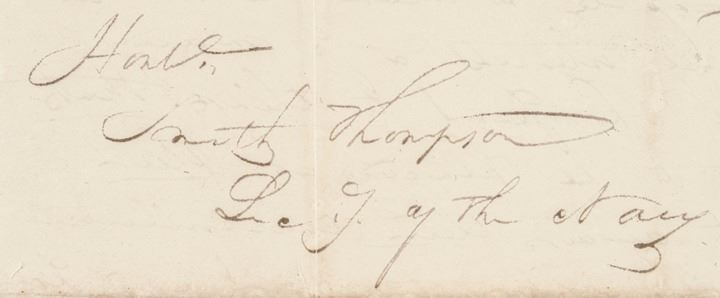 Honble.
Smith Thompson
Secy. of the Navy